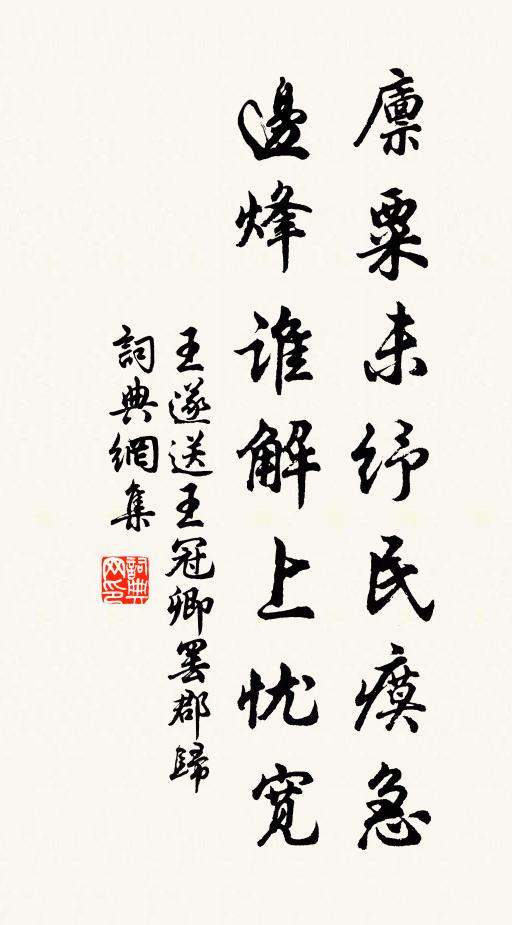 廪粟未纾民瘼急
邊烽谁解上忧寛
王遂送王冠卿罢郡歸
詞典網集
詞典网印